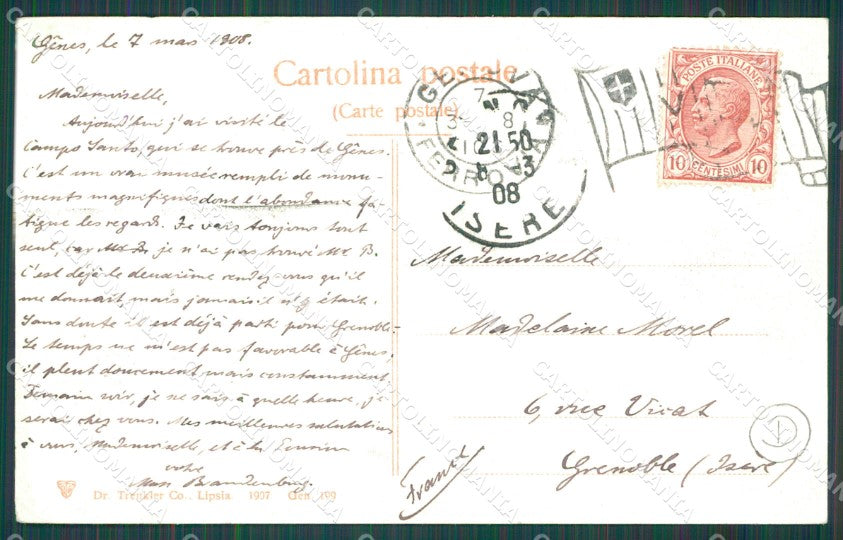 Gênes, le 7 mars 1908.
Mademoiselle,
Aujourd'hui j'ai visité le
Campo Santo, qui se trouve près de Gênes.
C'est un vrai musée rempli de monu-
ments magnifiques dont l'abondance fa-
tigue les regards. Je vais toujours tout
seul, car je n'ai pas trouvé Mr B.
C'est déjà le deuxième rendez-vous qu'il
me donnait mais jamais il n'y était.
Sans doute il est déjà parti pour Grenoble.-
Le temps ne m'est pas favorable à Gênes,
il pleut doucement mais constamment.
Demain soir, je ne sais à quelle heure, je
serai chez vous. Mes meilleures salutations
à vous, Mademoiselle, et à la
votre
Brandenburg.
Dr. Trenkler Co., Lipsia 1907 Gen. 199
Cartolina postale
(Carte postale)
FERROVIA
21 50
8 3
08
ISERE
POSTE ITALIANE
10 CENTESIMI 10
Mademoiselle
Madelaine Morel
6, rue Vicat
Grenoble (Isère)
France
CARTOLINOMANIA